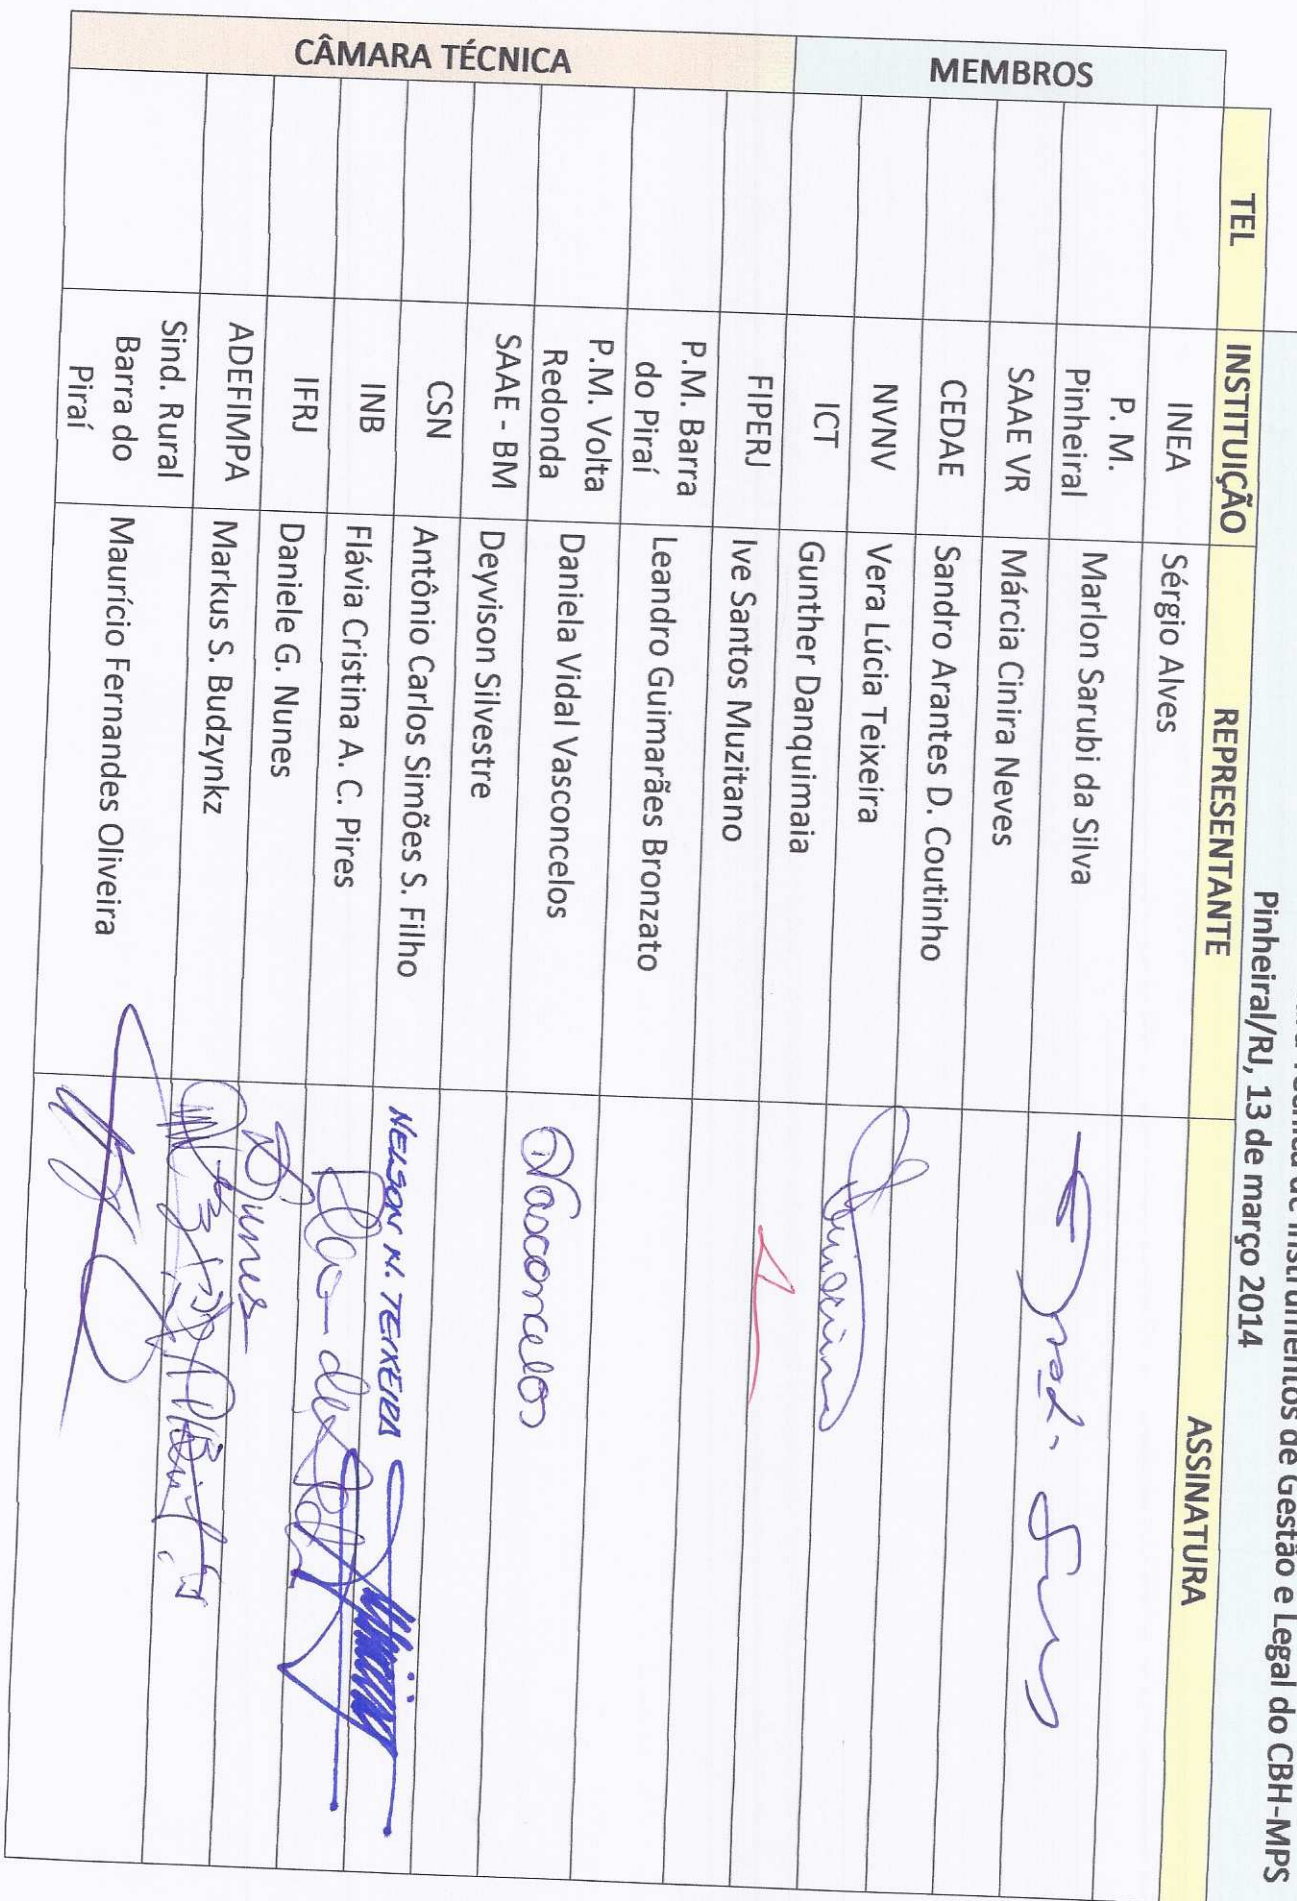 de Instrumentos de Gestão e Legal do CBH-MPS
Pinheiral/RJ, 13 de março 2014
TEL INSTITUIÇÃO REPRESENTANTE ASSINATURA
MEMBROS
INEA Sérgio Alves
P. M.
Pinheiral Marlon Sarubi da Silva
SAAE VR Márcia Cinira Neves
CEDAE Sandro Arantes D. Coutinho
NVNV Vera Lúcia Teixeira
ICT Gunther Danquimaia
CÂMARA TÉCNICA
FIPERJ Ive Santos Muzitano
P.M. Barra
do Piraí Leandro Guimarães Bronzato
P.M. Volta
Redonda Daniela Vidal Vasconcelos DVasconcelos
SAAE - BM Deyvison Silvestre
CSN Antônio Carlos Simões S. Filho NELSON N. TEIXEIRA
INB Flávia Cristina A. C. Pires
IFRJ Daniele G. Nunes DNunes
ADEFIMPA Markus S. Budzynkz
Sind. Rural
Barra do
Piraí Maurício Fernandes Oliveira